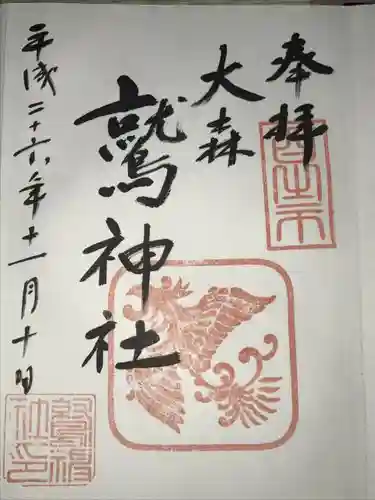 奉拝
酉の市
大森
鷲神社
平成二十六年十一月十日
鷲神社印